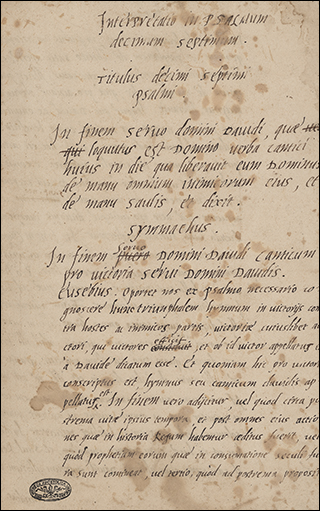 Interpretatio in psalmum
decimum septimum.
Titulus decimi septimi
psalmi
In finem servo domini Davidi, quae
loquutus est Domino verba cantici
huius in die qua liberavit eum Dominus
de manu omnium inimicorum eius, et
de manu saulis, et dixit.
Symmachus.
In finem servo Domini Davidi canticum
pro victoria servi Domini Davidis.
Eusebius: oportet nos ex psalmo necessario co
gnoscere hunc triumphalem hymnum in victorijs con
tra hostes ac inimicos partis, victoriae
ctori, qui victores et ob id victor appellatur
a Davide dictum esse. Et quoniam hic pro victoria
conscriptus est hymnus seu canticum Davidis ap
pellatur est. In finem vero adijcitur vel quod circa po
strema vitae ipsius tempora, et post omnes eius actio
nes quae in historia Regum habemus aeditus fuerit, vel
quod prophetiam eorum quae in consumatione seculi futu
ra sunt contineat, vel tertio, quod ad postrema